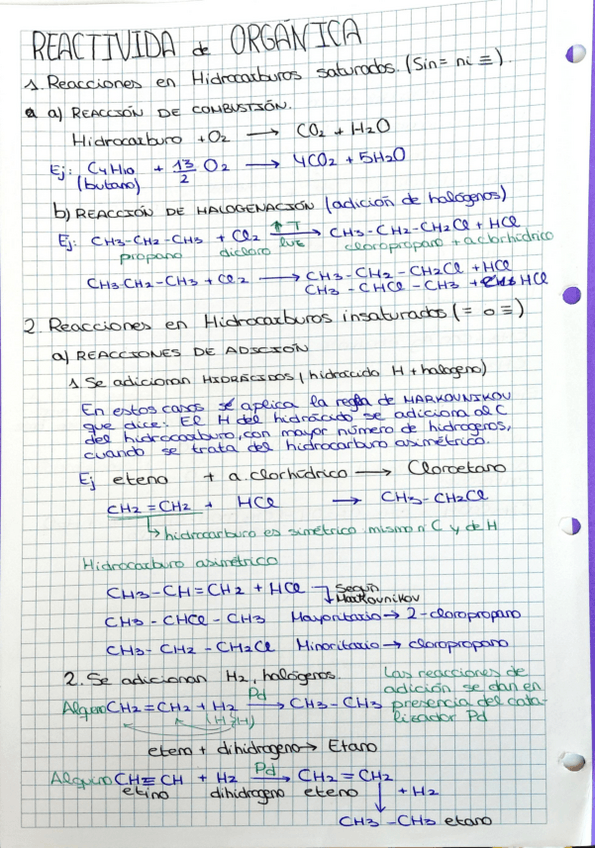 REACTIVIDA de ORGÁNICA
1. Reacciones en Hidrocarburos saturados. (Sin = ni ≡).
a) REACCIÓN DE COMBUSTIÓN.
Hidrocarburo + O2 → CO2 + H2O
Ej: C4H10 + 13/2 O2 → 4CO2 + 5H2O
(butano)
b) REACCIÓN DE HALOGENACIÓN (adición de halógenos)
Ej: CH3-CH2-CH3 + Cl2 ↑T luz → CH3-CH2-CH2Cl + HCl
propano dicloro cloropropano + a clorhídrico
CH3-CH2-CH3 + Cl2 → CH3-CH2-CH2Cl + HCl
CH3-CHCl-CH3 + HCl
2. Reacciones en Hidrocarburos insaturados (= o ≡)
a) REACCIONES DE ADICIÓN
1. Se adicionan HIDRÁCIDOS (hidrácido H + halogeno)
En estos casos se aplica la regla de MARKOVNIKOV
que dice: El H del hidrácido se adiciona al C
del hidrocarburo, con mayor número de hidrogeros,
cuando se trata del hidrocarburo asimétrico.
Ej eteno + a. clorhídrico → Cloroetano
CH2=CH2 + HCl → CH3-CH2Cl
↳ hidrocarburo es simétrico mismo nº C y de H
Hidrocarburo asimétrico
CH3-CH=CH2 + HCl Según
Markovnikov
CH3-CHCl-CH3 Mayoritario → 2-cloropropano
CH3-CH2-CH2Cl Minoritario → cloropropano
2. Se adicionan H2, halógenos.
Las reacciones de
adición se dan en
presencia del cata-
lizador Pd
Alqueno CH2=CH2 + H2 Pd → CH3-CH3
(H-H)
eteno + dihidrogeno → Etano
Alquino CH≡CH + H2 Pd → CH2=CH2
etino dihidrogeno eteno ↓ + H2
CH3-CH3 etano